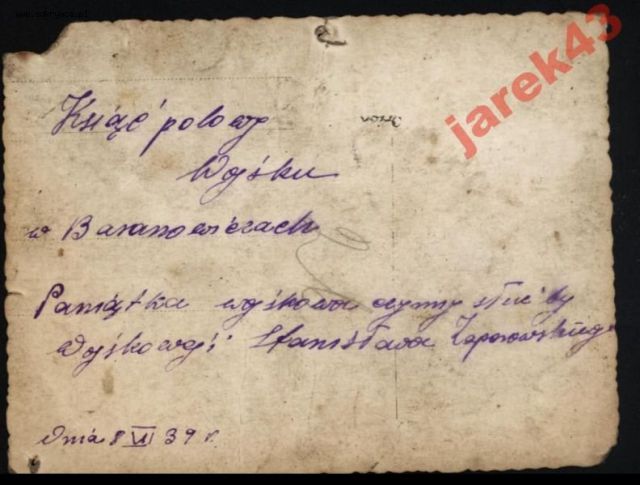 jarek43
Ksiąć polowy
Wojśku
w Baranowiczach
Pamiątka wojśkowa czynny służby
Wojśkowej: Stanisława Zaporowskiego
Dnia 8 VI 39 r.